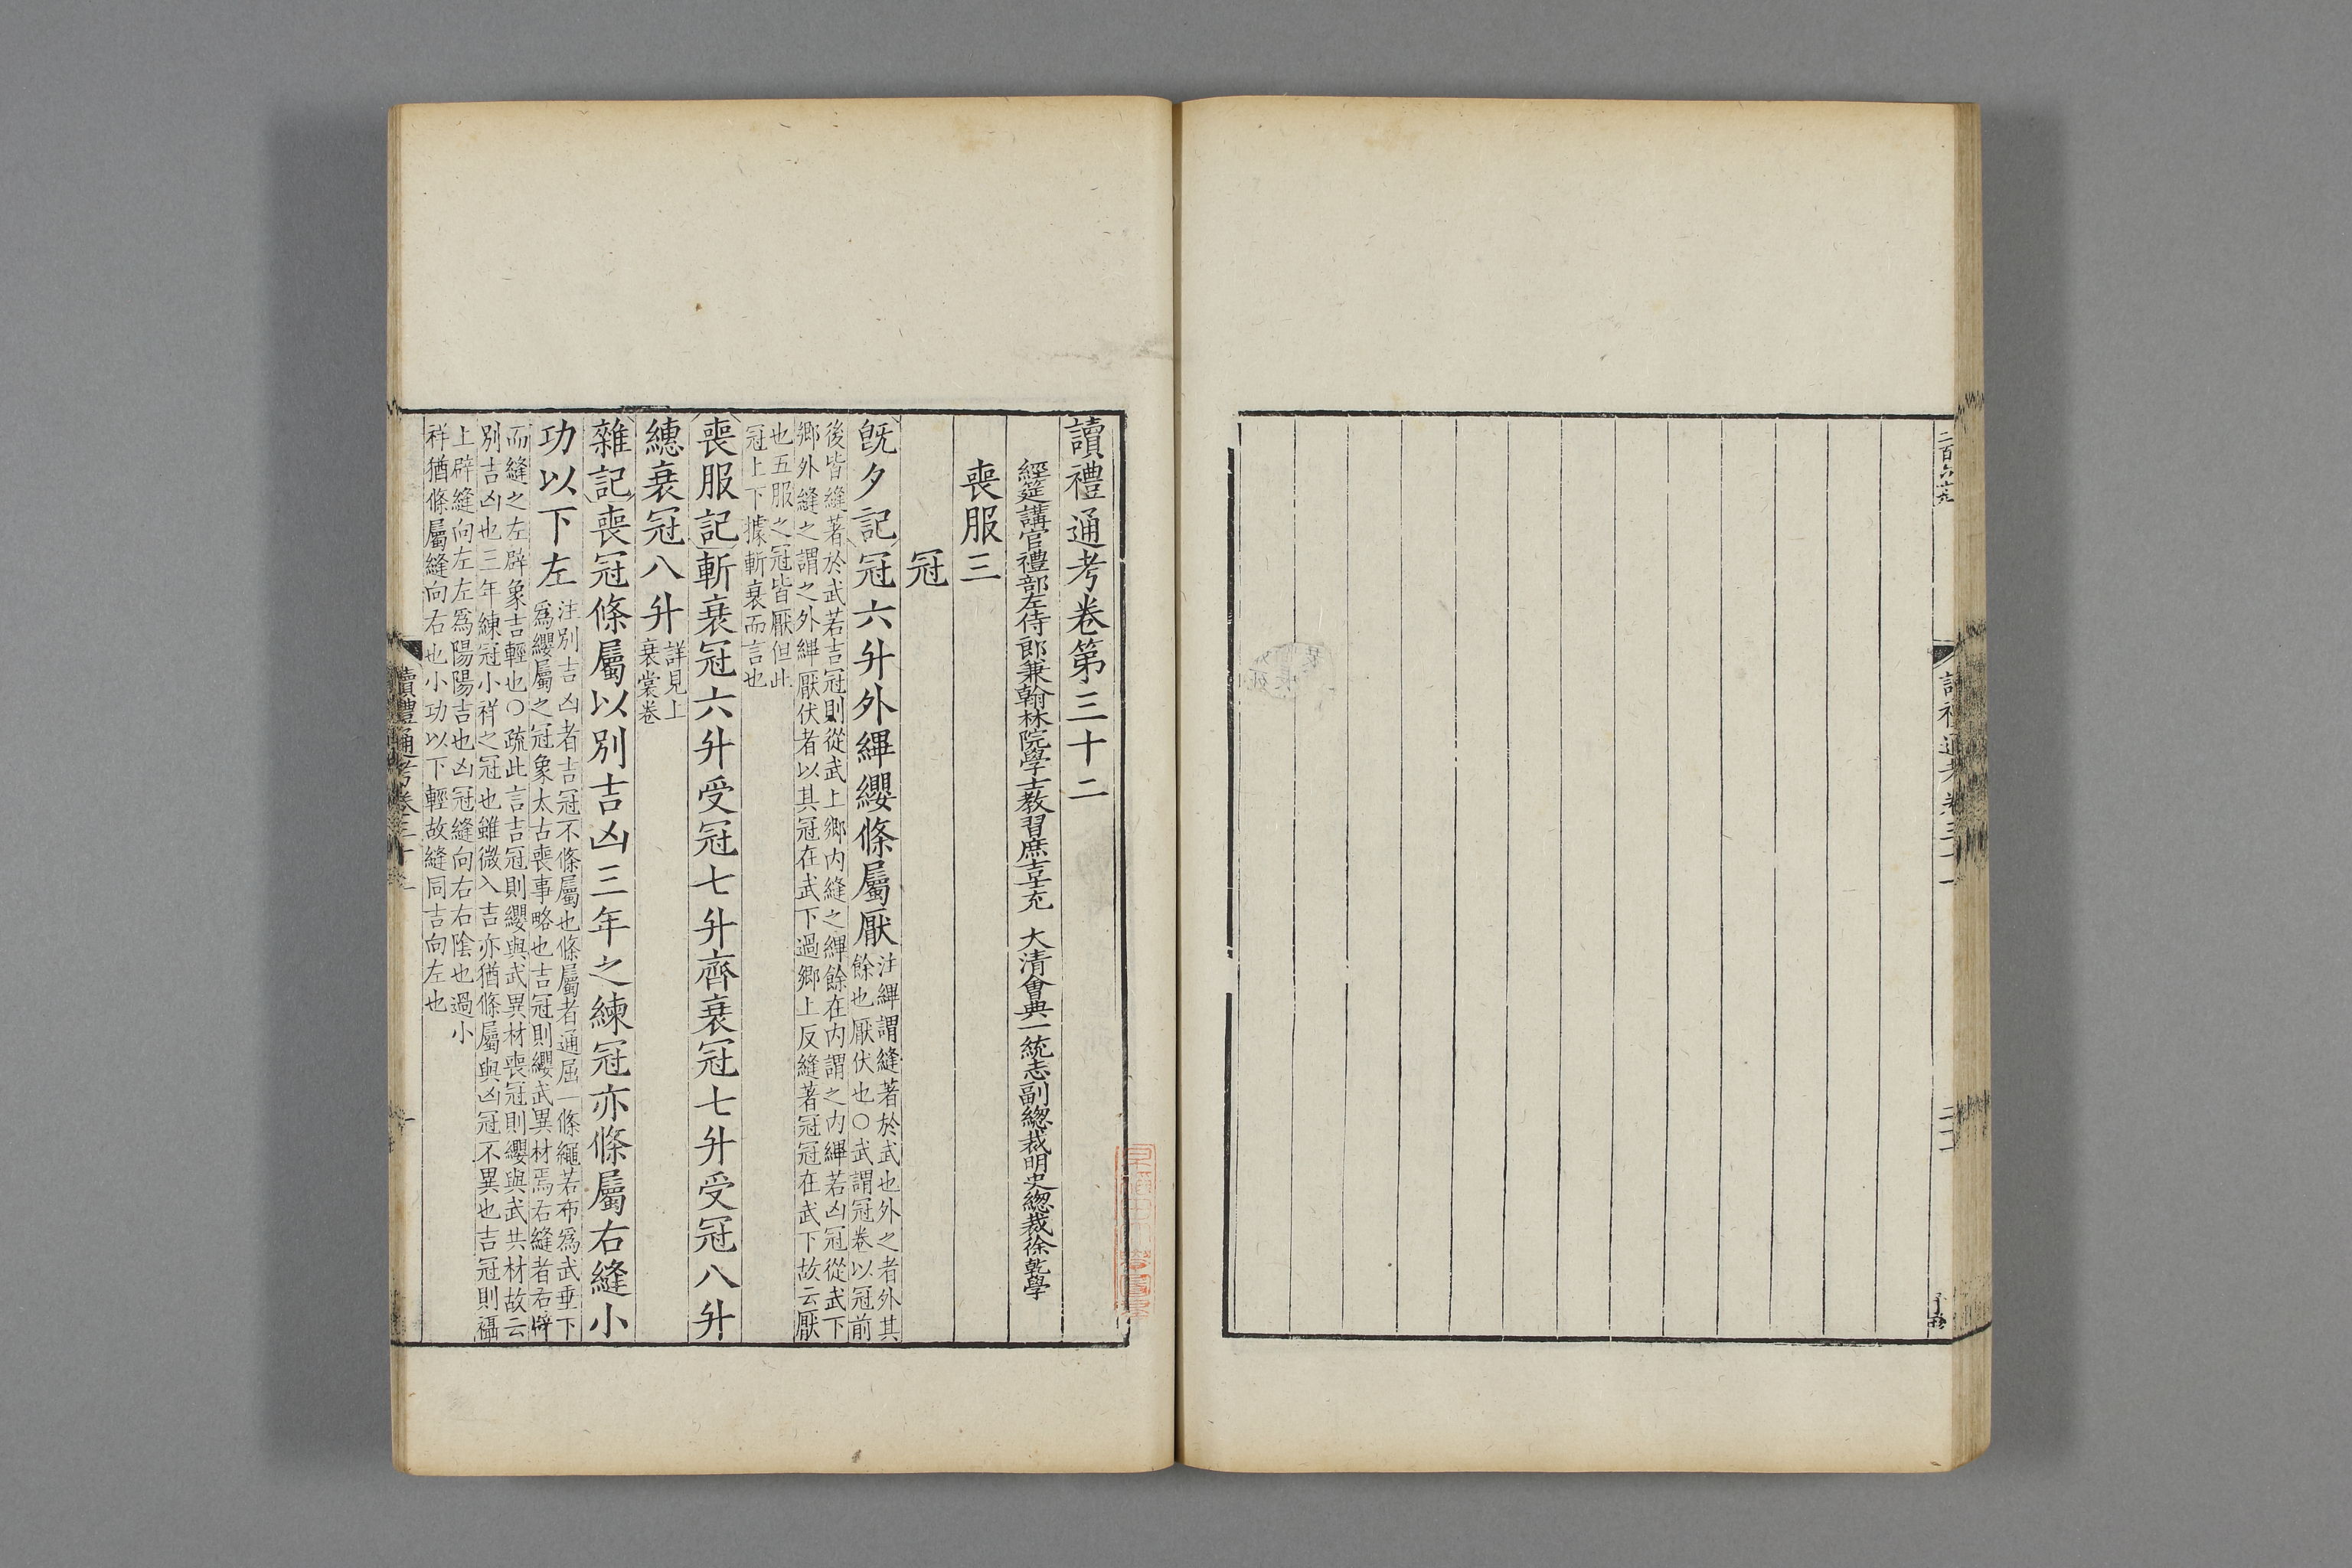 讀禮通考卷第三十二
經筵講官禮部左侍郎兼翰林院學士教習庶吉士充 大清會典一統志副總裁明史總裁徐乾學
喪服三
冠
旣夕記冠六升外縪纓條屬厭
注縪謂縫著於武也外之者外其
餘也厭伏也○武謂冠卷以冠前
後皆縫著於武若吉冠則從武上鄉內縫之縪餘在內謂之內縪若凶冠從武下
鄉外縫之謂之外縪厭伏者以其冠在武下過鄉上反縫著冠冠在武下故云厭
也五服之冠皆厭但此
冠上下據斬衰而言也
喪服記斬衰冠六升受冠七升齊衰冠七升受冠八升
繐衰冠八升
詳見上
衰裳卷
雜記喪冠條屬以別吉凶三年之練冠亦條屬右縫小
功以下左
注別吉凶者吉冠不條屬也條屬者通屈一條繩若布爲武垂下
爲纓屬之冠象太古喪事略也吉冠則纓武異材焉右縫者右辟
而縫之左辟象吉輕也○疏此言吉冠則纓與武異材喪冠則纓與武共材故云
別吉凶也三年練冠小祥之冠也雖微入吉亦猶條屬與凶冠不異也吉冠則襵
上辟縫向左左爲陽陽吉也凶冠縫向右右陰也過小
祥猶條屬縫向右也小功以下輕故縫同吉向左也
讀禮通考卷三十二
一